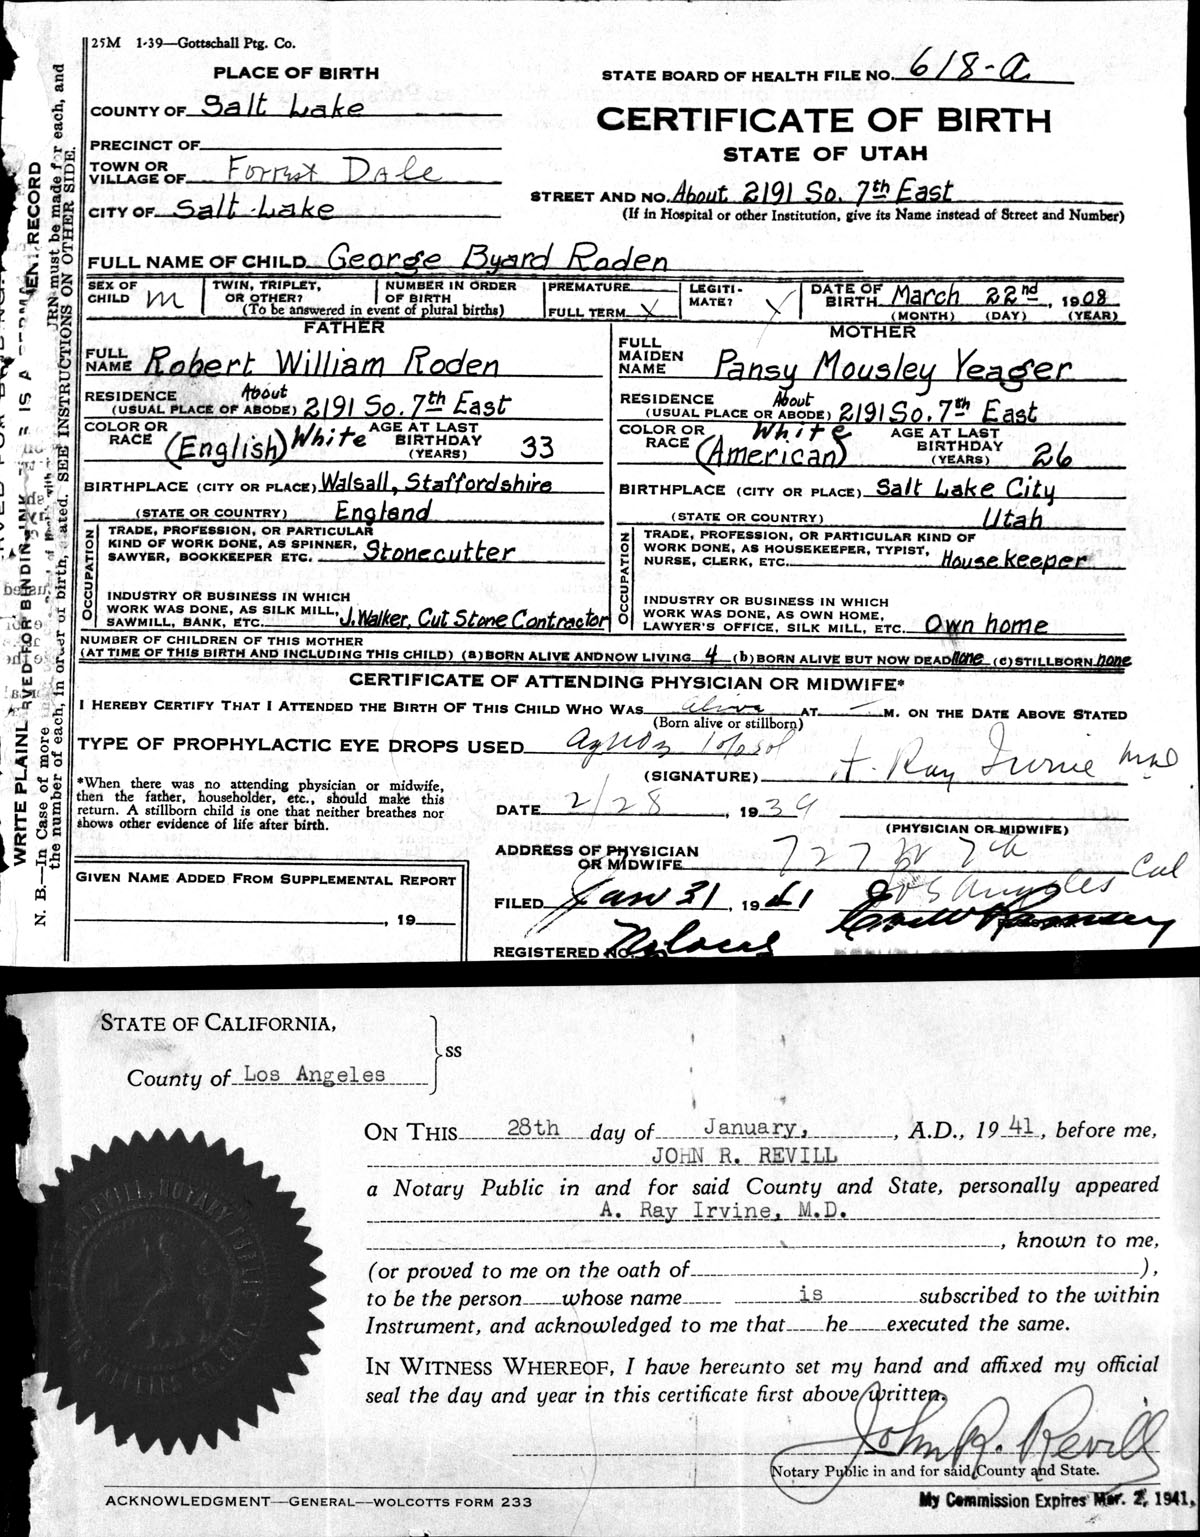 25M 1-39—Gottschall Ptg. Co.
PLACE OF BIRTH
STATE BOARD OF HEALTH FILE NO. 618-a
COUNTY OF Salt Lake
CERTIFICATE OF BIRTH
STATE OF UTAH
PRECINCT OF
TOWN OR VILLAGE OF Forrest Dale
STREET AND NO. About 2191 So. 7th East
CITY OF Salt Lake
(If in Hospital or other Institution, give its Name instead of Street and Number)
FULL NAME OF CHILD George Byard Roden
SEX OF CHILD m
TWIN, TRIPLET, OR OTHER?
NUMBER IN ORDER OF BIRTH
(To be answered in event of plural births)
PREMATURE
FULL TERM X
LEGITI-MATE? X
DATE OF BIRTH March 22nd, 1908
(MONTH) (DAY) (YEAR)
FATHER
FULL NAME Robert William Roden
RESIDENCE (USUAL PLACE OF ABODE) About 2191 So. 7th East
COLOR OR RACE (English) White
AGE AT LAST BIRTHDAY (YEARS) 33
BIRTHPLACE (CITY OR PLACE) Walsall, Staffordshire
(STATE OR COUNTRY) England
OCCUPATION
TRADE, PROFESSION, OR PARTICULAR KIND OF WORK DONE, AS SPINNER, SAWYER, BOOKKEEPER ETC. Stonecutter
INDUSTRY OR BUSINESS IN WHICH WORK WAS DONE, AS SILK MILL, SAWMILL, BANK, ETC. J. Walker, Cut Stone Contractor
MOTHER
FULL MAIDEN NAME Pansy Mousley Yeager
RESIDENCE (USUAL PLACE OR ABODE) About 2191 So. 7th East
COLOR OR RACE White (American)
AGE AT LAST BIRTHDAY (YEARS) 26
BIRTHPLACE (CITY OR PLACE) Salt Lake City
(STATE OR COUNTRY) Utah
OCCUPATION
TRADE, PROFESSION, OR PARTICULAR KIND OF WORK DONE, AS HOUSEKEEPER, TYPIST, NURSE, CLERK, ETC. Housekeeper
INDUSTRY OR BUSINESS IN WHICH WORK WAS DONE, AS OWN HOME, LAWYER'S OFFICE, SILK MILL, ETC. Own home
NUMBER OF CHILDREN OF THIS MOTHER
(AT TIME OF THIS BIRTH AND INCLUDING THIS CHILD) (a) BORN ALIVE AND NOW LIVING 4 (b) BORN ALIVE BUT NOW DEAD none (c) STILLBORN none
CERTIFICATE OF ATTENDING PHYSICIAN OR MIDWIFE*
I HEREBY CERTIFY THAT I ATTENDED THE BIRTH OF THIS CHILD WHO WAS alive AT — M. ON THE DATE ABOVE STATED
(Born alive or stillborn)
TYPE OF PROPHYLACTIC EYE DROPS USED
(SIGNATURE) A. Ray Irvine M.D.
*When there was no attending physician or midwife,
then the father, householder, etc., should make this
return. A stillborn child is one that neither breathes nor
shows other evidence of life after birth.
DATE 2/28, 1939
(PHYSICIAN OR MIDWIFE)
ADDRESS OF PHYSICIAN OR MIDWIFE 727 W 7th
Los Angeles Cal
GIVEN NAME ADDED FROM SUPPLEMENTAL REPORT
, 19
FILED Jan 31, 1941
REGISTERED NO.
WRITE PLAINL
N. B.—In Case of more
the number of each, in order of birth, stated. SEE INSTRUCTIONS ON OTHER SIDE.
STATE OF CALIFORNIA,
County of Los Angeles
ss
ON THIS 28th day of January, , A.D., 1941, before me,
JOHN R. REVILL
a Notary Public in and for said County and State, personally appeared
A. Ray Irvine, M.D.
, known to me,
(or proved to me on the oath of ),
to be the person whose name is subscribed to the within
Instrument, and acknowledged to me that he executed the same.
IN WITNESS WHEREOF, I have hereunto set my hand and affixed my official
seal the day and year in this certificate first above written.
John R. Revill
Notary Public in and for said County and State.
ACKNOWLEDGMENT—GENERAL—WOLCOTTS FORM 233
My Commission Expires Mar. 2, 1941.